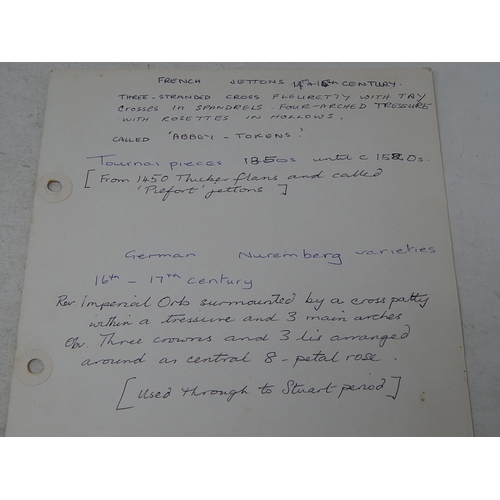 FRENCH JETTONS 14th-15th CENTURY.
THREE-STRANDED CROSS FLEURETTY WITH TAY
CROSSES IN SPANDRELS. FOUR-ARCHED TRESSURE
WITH ROSETTES IN HOLLOWS.
CALLED 'ABBEY-TOKENS'.
Tournai pieces 1350s until c 1580s.
[From 1450 Thicker flans and called
'Piefort' jettons]
German Nuremberg varieties
16th - 17th century
Rev Imperial Orb surmounted by a cross patty
within a tressure and 3 main arches
Obv. Three crowns and 3 lis arranged
around as central 8-petal rose.
[Used through to Stuart period]